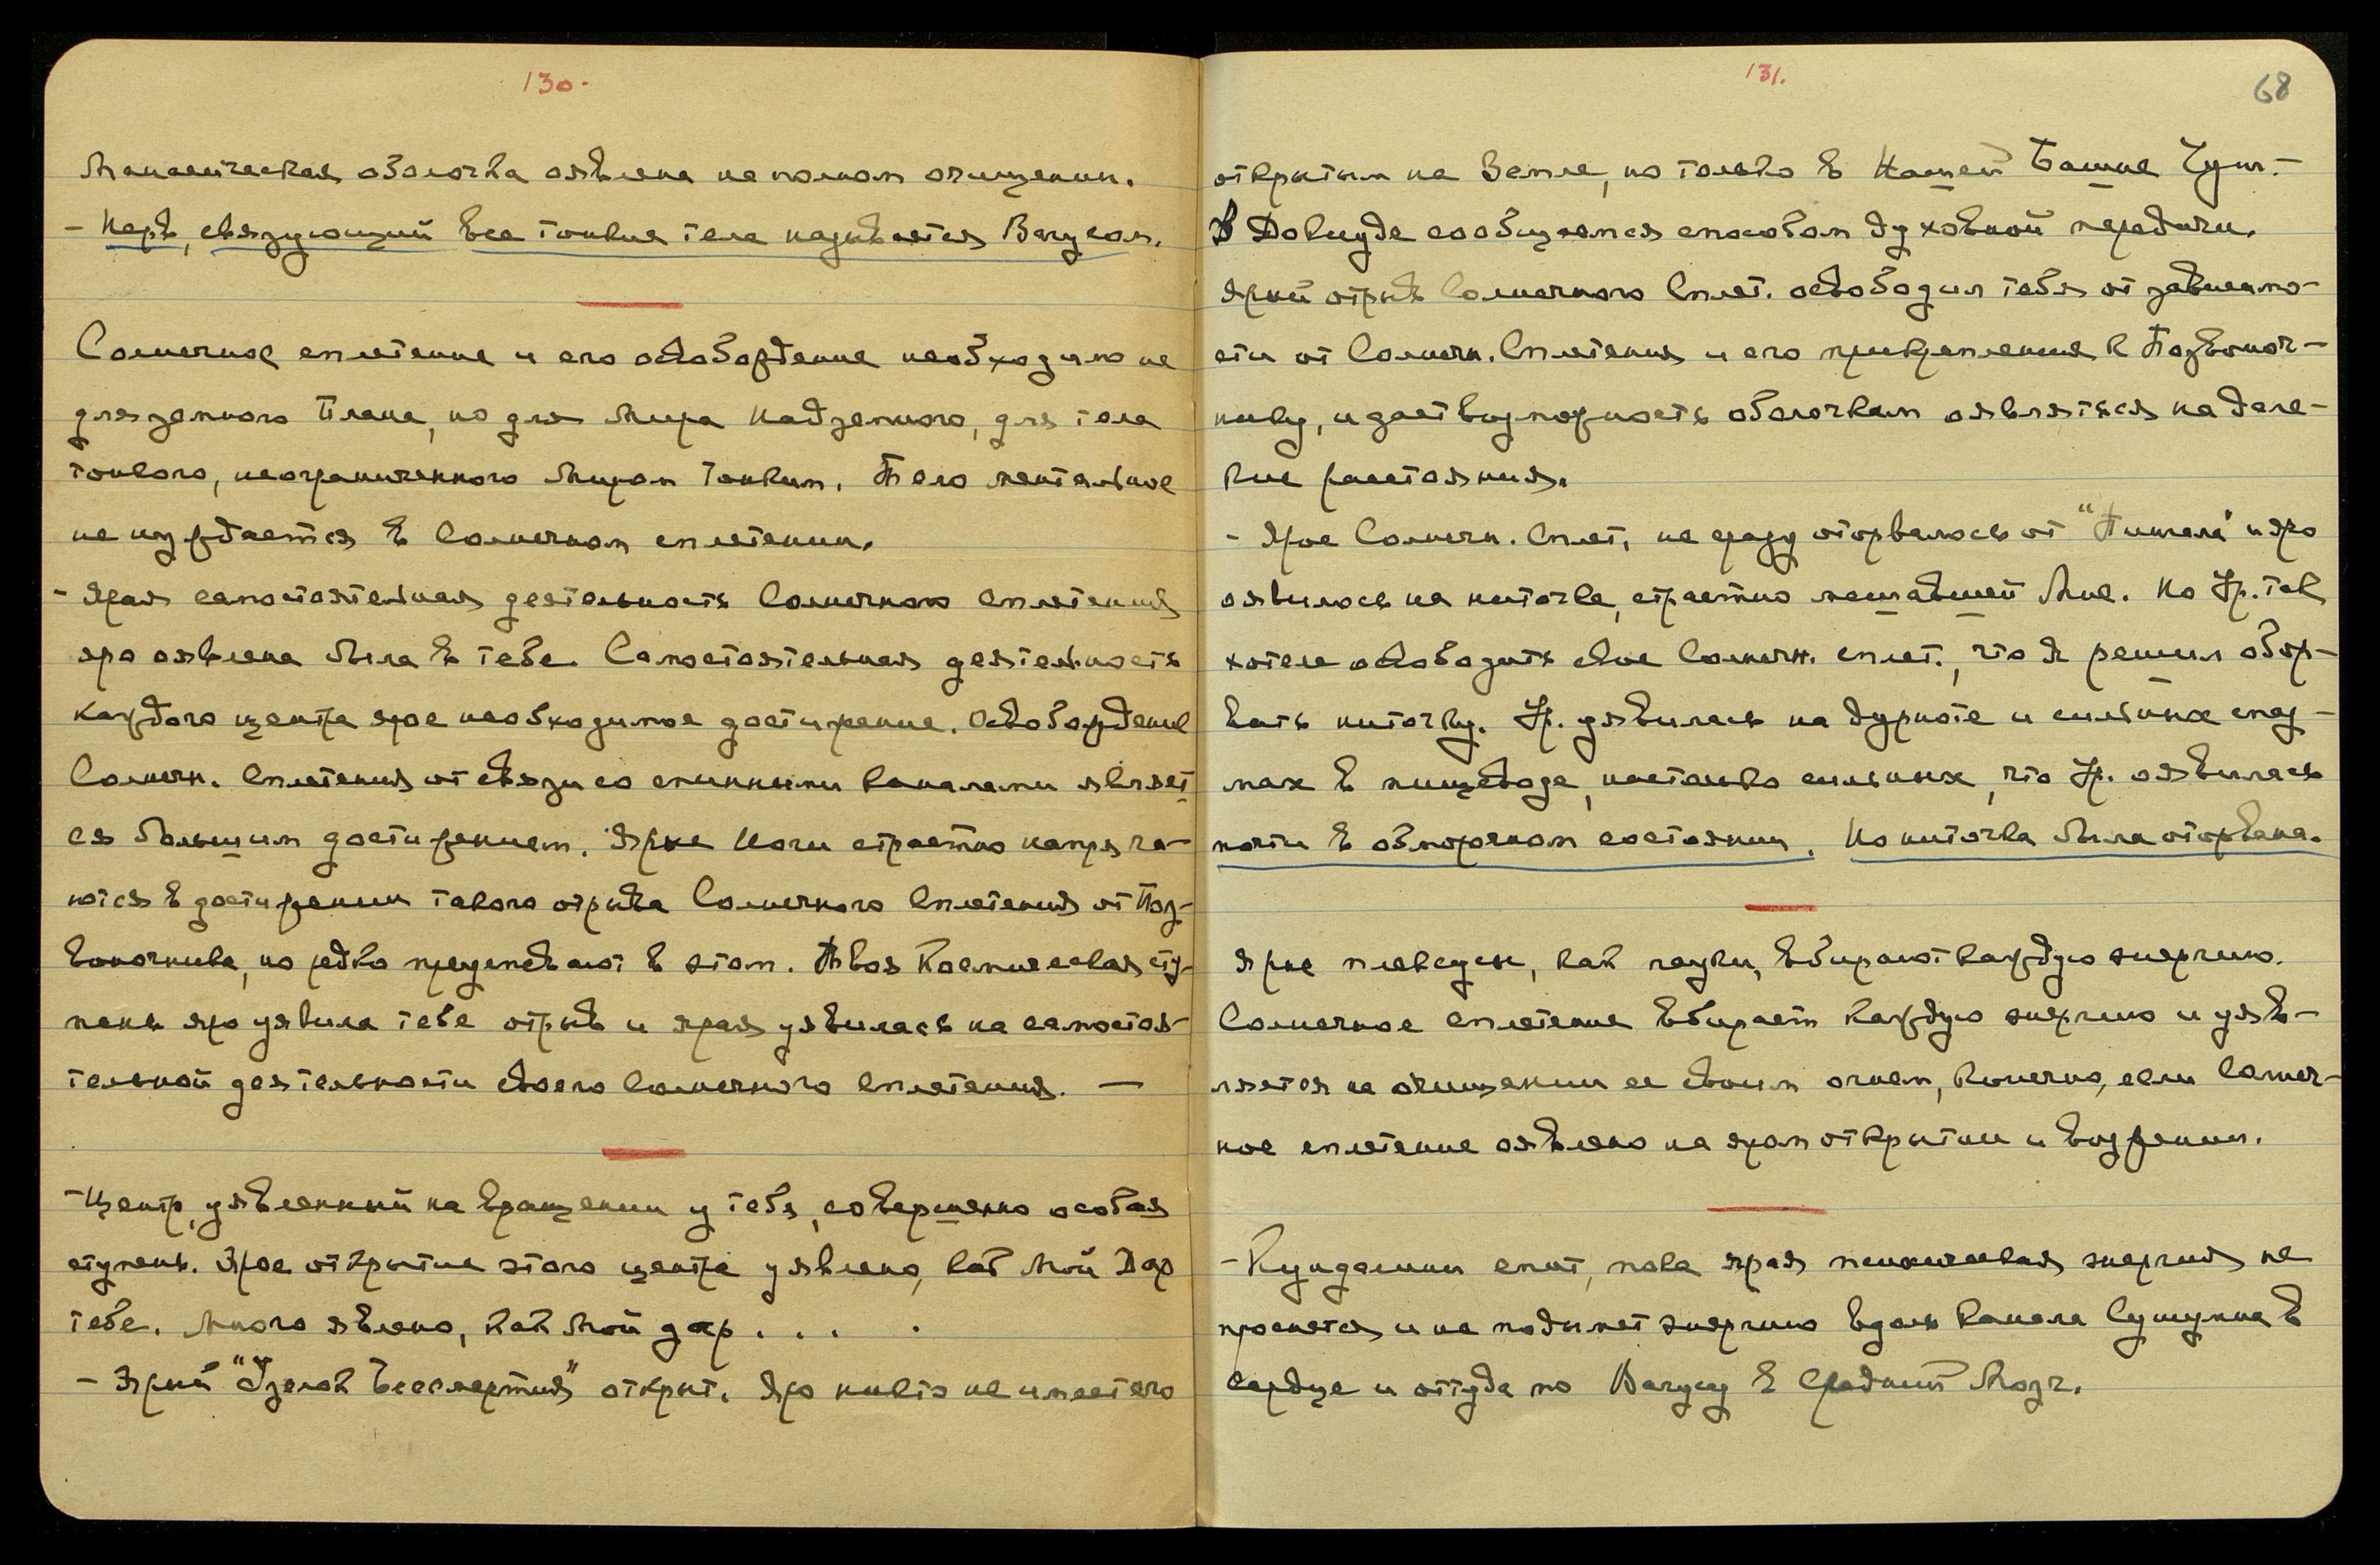 130.
Манасическая оболочка оявлена на полном очищении.
- Нерв, связующий все тонкие тела называется Вагусом.
Солнечное сплетение и его освобождение необходимо не
для земного Плана, но для Мира Надземного, для тела
тонкого, неограниченного Миром Тонким. Тело ментальное
не нуждается в Солнечном сплетении.
- Ярая самостоятельная деятельность Солнечного Сплетения
яро оявлена была в тебе. Самостоятельная деятельность
каждого центра ярое необходимое достижение. Освобождение
Солнечн. Сплетения от связи со спинными каналами являет-
ся большим достижением. Ярые Йоги страстно напряга-
ются в достижении такого отрыва Солнечного Сплетения от Поз-
воночника, но редко преуспевают в этом. Твоя Космическая сту-
пень яро уявила тебе отрыв и ярая уявилась на самостоя-
тельной деятельности своего Солнечного Сплетения. —
- Центр, уявленный на вращении у тебя, совершенно особая
ступень. Ярое открытие этого центра уявлено, как Мой Дар
тебе. Много явлено, как Мой дар . . . .
- Ярый "Узелок Бессмертия" открыт. Яро никто не имеет его
131.
68
открытым на Земле, но только в Нашей Башне Чун.-
В Докиуде сообщаемся способом духовной передачи.
Ярый отрыв Солнечного Сплет. освободил тебя от зависимо-
сти от Солнечн. Сплетения и его прикрепления к Позвоноч-
нику, и дает возможность оболочкам оявляться на дале-
кие расстояния.
- Ярое Солнечн. Сплет. не сразу оторвалось от "Пингала" и яро
оявилось на ниточке, страстно мешавшей Мне. Но Ур. так
хотела освободить свое Солнечн. сплет., что Я решил обор-
вать ниточку. Ур. уявилась на дурноте и сильных спаз-
мах в пищеводе, настолько сильных, что Ур. оявилась
почти в обморочном состоянии. Но ниточка была оторвана.
Ярые плексусы, как пауки, вбирают каждую энергию.
Солнечное сплетение вбирает каждую энергию и уяв-
ляется на очищении ее своим огнем, конечно, если Солнеч-
ное сплетение оявлено на яром открытии и вожжении.
- Кундалини спит, пока ярая психическая энергия не
проснется и не подымет энергию вдоль канала Сушумна в
сердце и оттуда по Вагусу в Средний Мозг.